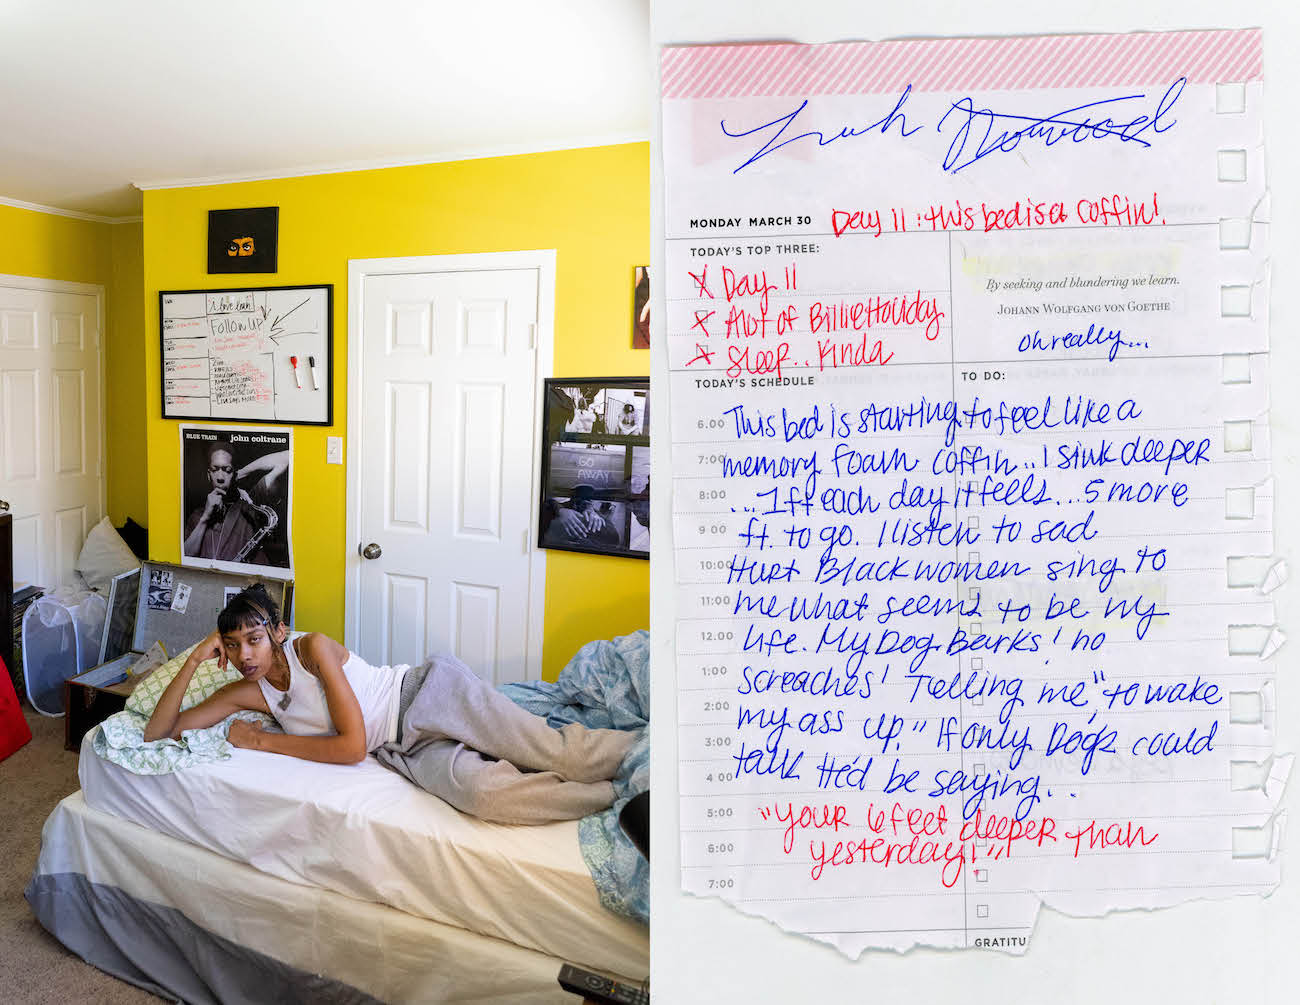 i love leah
Follow UP
BLUE TRAIN john coltrane
GO
AWAY
Leah Norwood
MONDAY MARCH 30 Day 11 : this bed is a coffin!
TODAY'S TOP THREE:
X Day 11
X Alot of Billie Holiday
X Sleep.. Kinda
By seeking and blundering we learn.
JOHANN WOLFGANG VON GOETHE
oh really...
TODAY'S SCHEDULE
TO DO:
6.00 This bed is starting to feel like a
7:00 memory foam coffin.. I sink deeper
8:00 ...1 ft each day it feels...5 more
9 00 ft. to go. I listen to sad
10:00 Hurt Black women sing to
11:00 me what seems to be my
12.00 life. My Dog Barks! no
1:00 screaches! Telling me, "to wake
2:00 my ass up." If only Dogs could
3:00 talk He'd be saying...
4 00
5:00 "Your 6 feet deeper than
6:00 yesterday!"
7:00
GRATITU